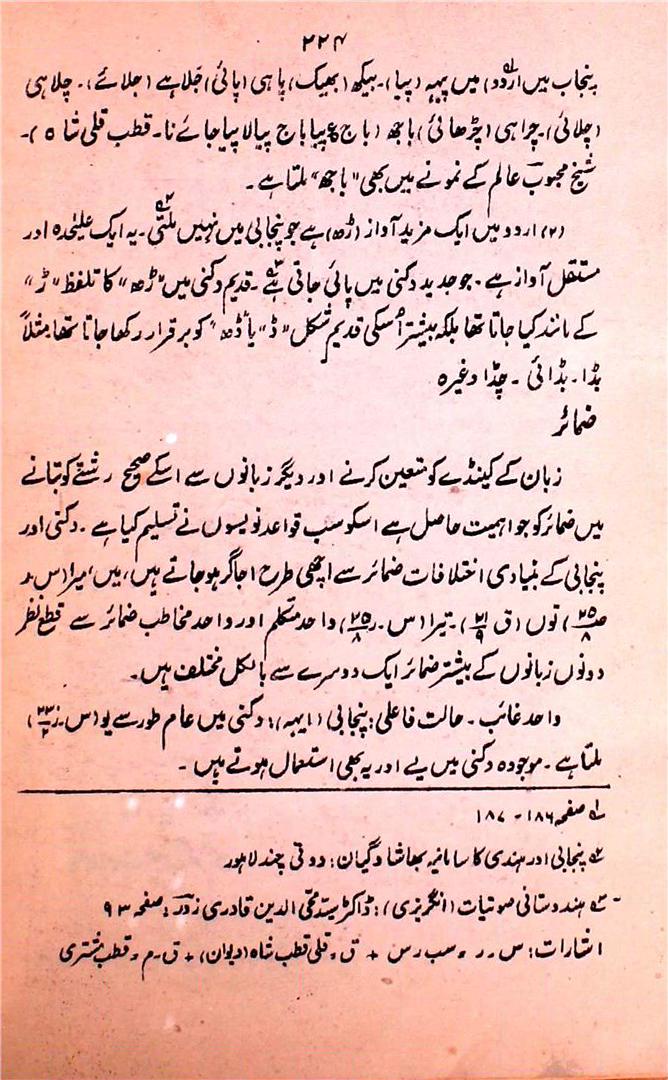 ۲۲۴
پنجاب میں اردو) میں پیہہ (پیا)۔ بیکھ (بھیک) پاہی (پائی) جَلاہے (جلائے)۔ چلاہی
(چلائی)۔ چراہی (چڑھائی) باجھ (باج ع پیا باج پیالا پیا جائے نا۔ قطب قلی شاہ)۔
شیخ محبوب عالم کے نمونے میں بھی "باجھ" ملتا ہے۔
(۷) اردو میں ایک مزید آواز (ڑھ) ہے جو پنجابی میں نہیں ملتی۲۔ یہ ایک علیٰحدہ اور
مستقل آواز ہے۔ جو جدید دکنی میں پائی جاتی ہے۳۔ قدیم دکنی میں "ڑھ" کا تلفظ "ڑ"
کے مانند کیا جاتا تھا بلکہ بیشتر اُسکی قدیم شکل "ڈ" یا "ڈھ" کو برقرار رکھا جاتا تھا۔ مثلاً
بڈا۔ بڈائی ۔ چڈا وغیرہ
ضمائر
زبان کے کینڈے کو متعین کرنے اور دیگر زبانوں سے اسکے صحیح رشتے کو بتانے
میں ضمائر کو جو اہمیت حاصل ہے اسکو سب قواعد نویسوں نے تسلیم کیا ہے ۔ دکنی اور
پنجابی کے بنیادی اختلافات ضمائر سے اچھی طرح اجاگر ہو جاتے ہیں، میں، میرا (س۔ر
ص۲۵/۸) توں (ق ۲۱/۹)۔ تیرا (س۔ر ۲۵/۸) واحد متکلم اور واحد مخاطب ضمائر سے قطع نظر
دونوں زبانوں کے بیشتر ضمائر ایک دوسرے سے بالکل مختلف ہیں۔
واحد غائب ۔ حالت فاعلی: پنجابی (ایہہ): دکنی میں عام طور سے یو (س۔ر ۲۳/۲)
ملتا ہے۔ موجودہ دکنی میں یے اور یہ بھی استعمال ہوتے ہیں ۔
۱ صفحہ ۱۸۶ - ۱۸۷
۲ پنجابی اور ہندی کا سامانیہ بھاشا وگیان: دونی چند لاہور
۳ ہندوستانی صوتیات (انگریزی): ڈاکٹر سید محی الدین قادری زور: صفحہ ۹۳
اشارات: س۔ر = سب رس + ق = قلی قطب شاہ (دیوان) + ق۔م = قطب مشتری